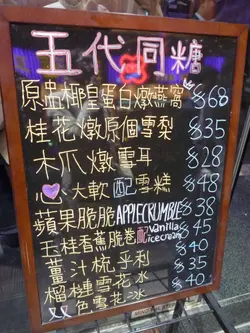 五代同糖
原盅椰皇蛋白燉燕窩 $68
桂花燉原個雪梨 $35
木爪燉雪耳 $28
心大軟配雪糕 $48
蘋果脆脆APPLECRUMBLE $38
玉桂香蕉脆卷配Vanilla icecream $45
薑汁梳乎利 $40
榴槤雪花冰 $35
双色雪花冰 $40